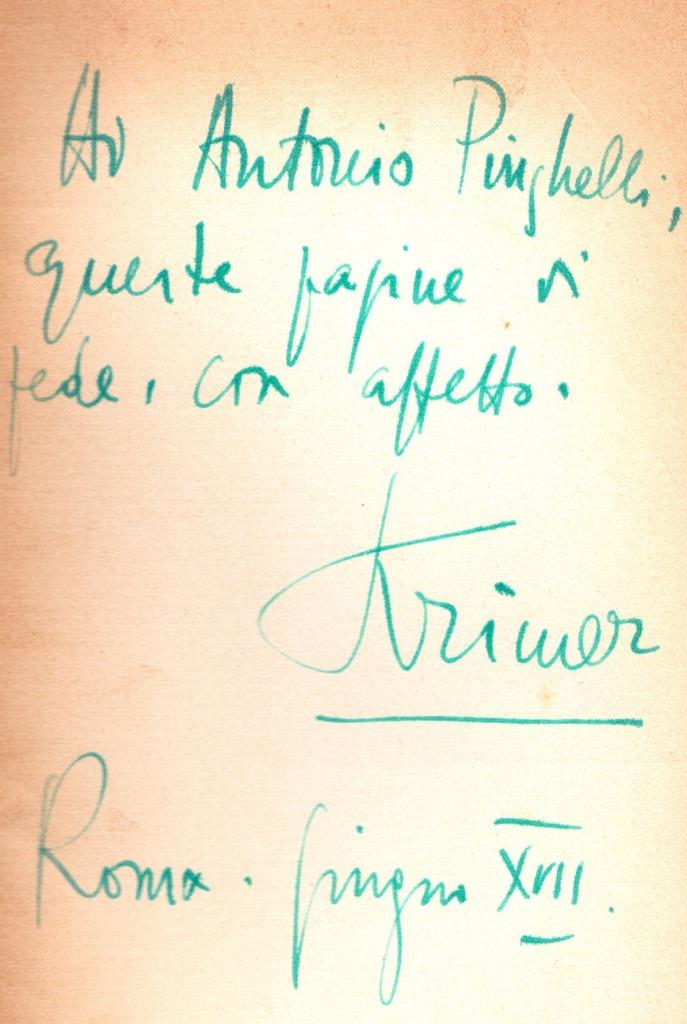 Ad Antonio Pinghelli,
queste pagine di
fede, con affetto.
Krimer
Roma. giugno XVII.